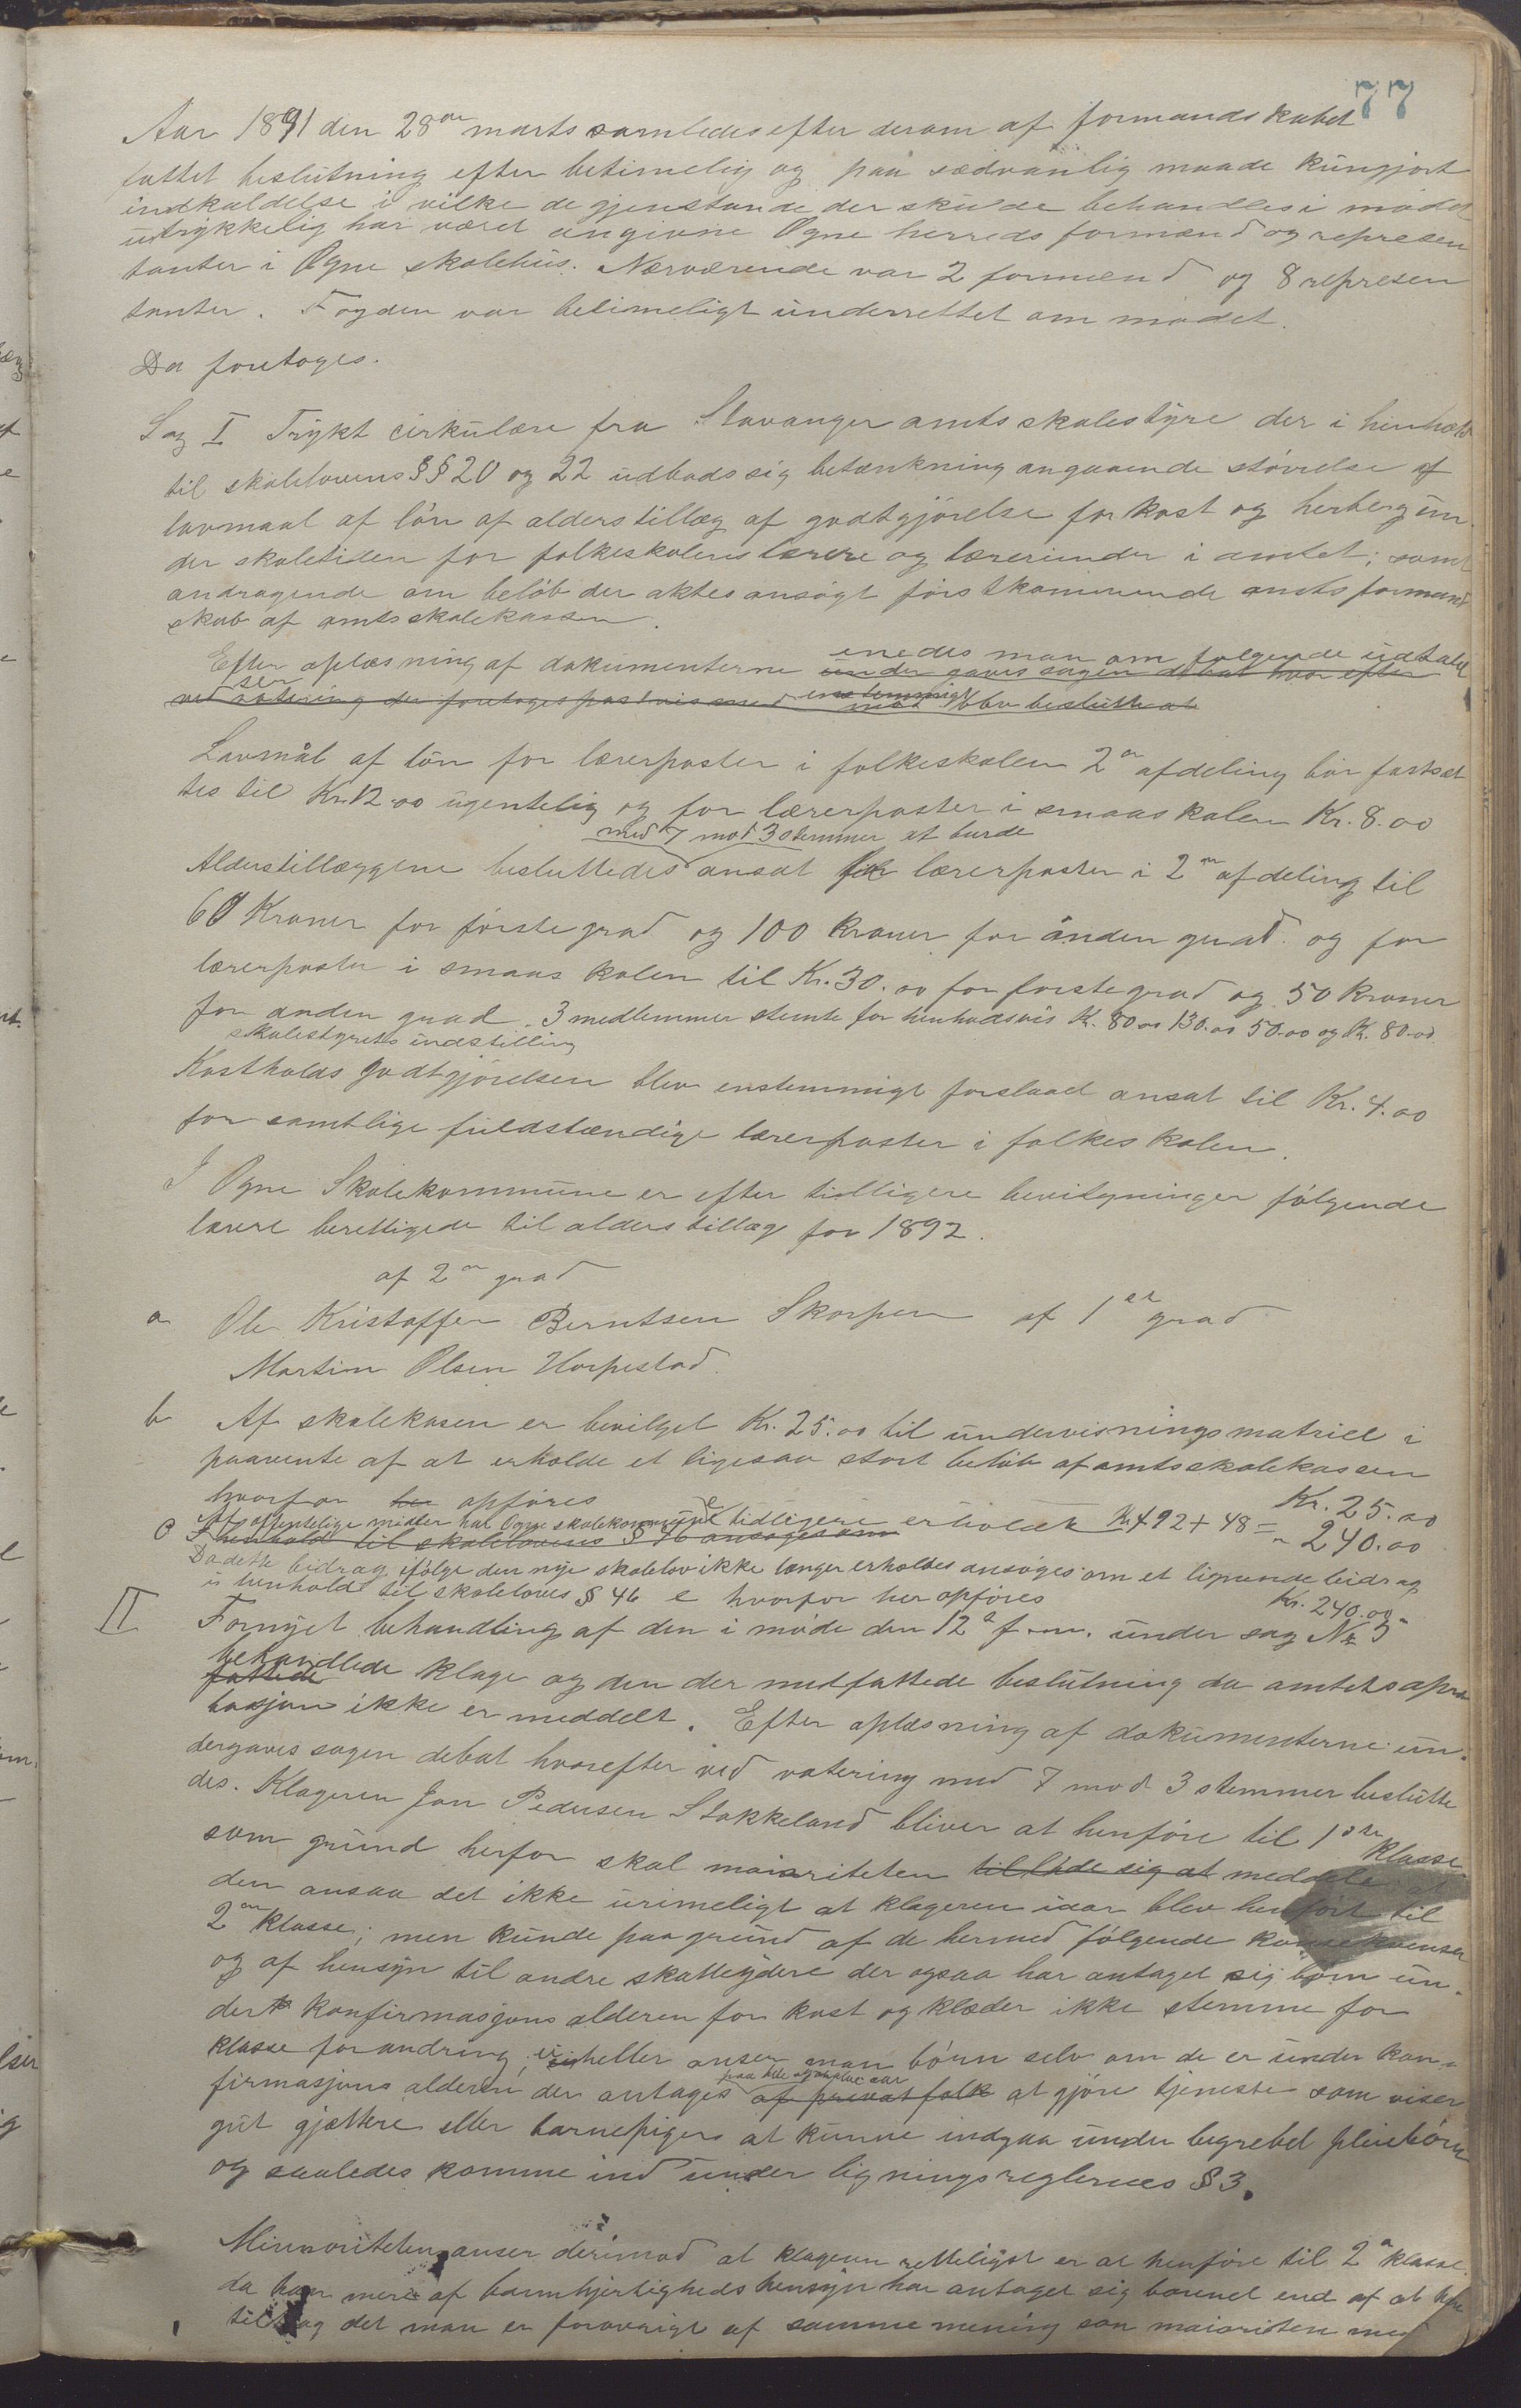 77
Aar 1891 den 28de marts samledes efter derom af formandskabet
fattet beslutning efter betimelig og paa sædvanlig maade kungjort
indkaldelse i vilke de gjenstande der skulde behandles i mødet
utrykkelig har været angivne Ogne herreds formænd og represen
tanter i Ogne skolehus. Nærværende var 2 formænd og 8 represen
tanter. Fogden var betimeligt underrettet om mødet.
Da foretoges.
Sag I Trykt cirkulære fra Stavanger amtsskolestyre der i henhold
til skolelovens §§ 20 og 22 udbads sig betænkning angaaende størrelse af
lavmaal af løn af alderstillæg af godtgjørelse for kost og herberg un
der skoletiden for folkeskolens lærere og lærerinder i amtet; samt
andragende om beløb der aktes ansøgt førstkommende amtsformand
skab af amtsskolekassen.
Efter oplæsning af dokumenterne enedes man om følgende udtalel
ser
under gaves sagen debat hvor efter
ved votering der foretoges postvis med enstemmigt mod blev besluttet at
Lavmål af løn for lærerposter i folkeskolen 2en afdeling bør fastsæt
tes til Kr. 12.00 ugentelig og for lærerposter i smaaskolen Kr. 8.00
med 7 mod 3 stemmer at burde
Alderstillæggene besluttedes ansat for lærerposter i 2en afdeling til
60 Kroner for første grad og 100 Kroner for anden grad. og for
lærerposter i smaaskolen til Kr. 30.00 for første grad og 50 Kroner
for anden grad. 3 medlemmer stemte for henholdsvis Kr. 80.00 130.00 50.00 og Kr. 80.00
skolestyrets indstilling
Kostholds godtgjørelsen blev enstemmigt forslaaet ansat til Kr. 4.00
for samtlige fuldstændige lærerposter i folkeskolen.
I Ogne Skolekommune er efter tidligere bevilgninger følgende
lærere berettigede til alderstillæg for 1892.
af 2en grad
a Ole Kristoffer Berntsen Skorpen af 1ste grad
Martin Olsen Horpestad.
b Af skolekasen er bevilget Kr. 25.00 til undervisningsmatriel i
paavente af at erholde et ligesaa stort beløb af amtsskolekassen
hvorfor her opføres Kr. 25.00
Af offentelige midler har Ogne skolekommune tidligere erholdt Kr. 192 + 48 = " 240.00
c I henhold til skolelovens § 46 ansøges om
Da dette bidrag ifølge den nye skolelov ikke længer erholdes ansøges om et lignende bidrag
i henhold til skolelovens § 46 e hvorfor her opføres Kr. 240.00
II Fornyet behandling af den i møde den 12te f.m. under sag No 5
behandlede
fattede klage og den der medfattede beslutning da amtets apro
basjon ikke er meddelt. Efter oplæsning af dokumenterne un-
dergaves sagen debat hvorefter ved votering med 7 mod 3 stemmer beslutte
des. Klageren Jon Pedersen Stokkeland bliver at henføre til 1ste klasse
som grund herfor skal maioriteten tillade sig at meddele at
den ansaa det ikke urimeligt at klageren iaar blev henført til
2en klasse; men kunde paa grund af de hermed følgende konsekvenser
og af hensyn til andre skatteydere der ogsaa har antaget sig børn un-
der konfirmasjons alderen for kost og klæder ikke stemme for
klasse forandring; ei heller anser man børn selv om de er under kon-
firmasjons alderen der antages af privat folk at gjøre tjeneste som viser
gut gjættere eller barnepiger at kunne indgaa under begrebet pleiebørn
og saaledes komme ind under ligningsreglernes § 3.
Minoriteten anser derimod at klageren retteligst er at henføre til 2en klasse
da han mere af barmhjertigheds hensyn har antaget sig barnet end af at
til og det man er forøvrigt af samme mening som maioriteten med